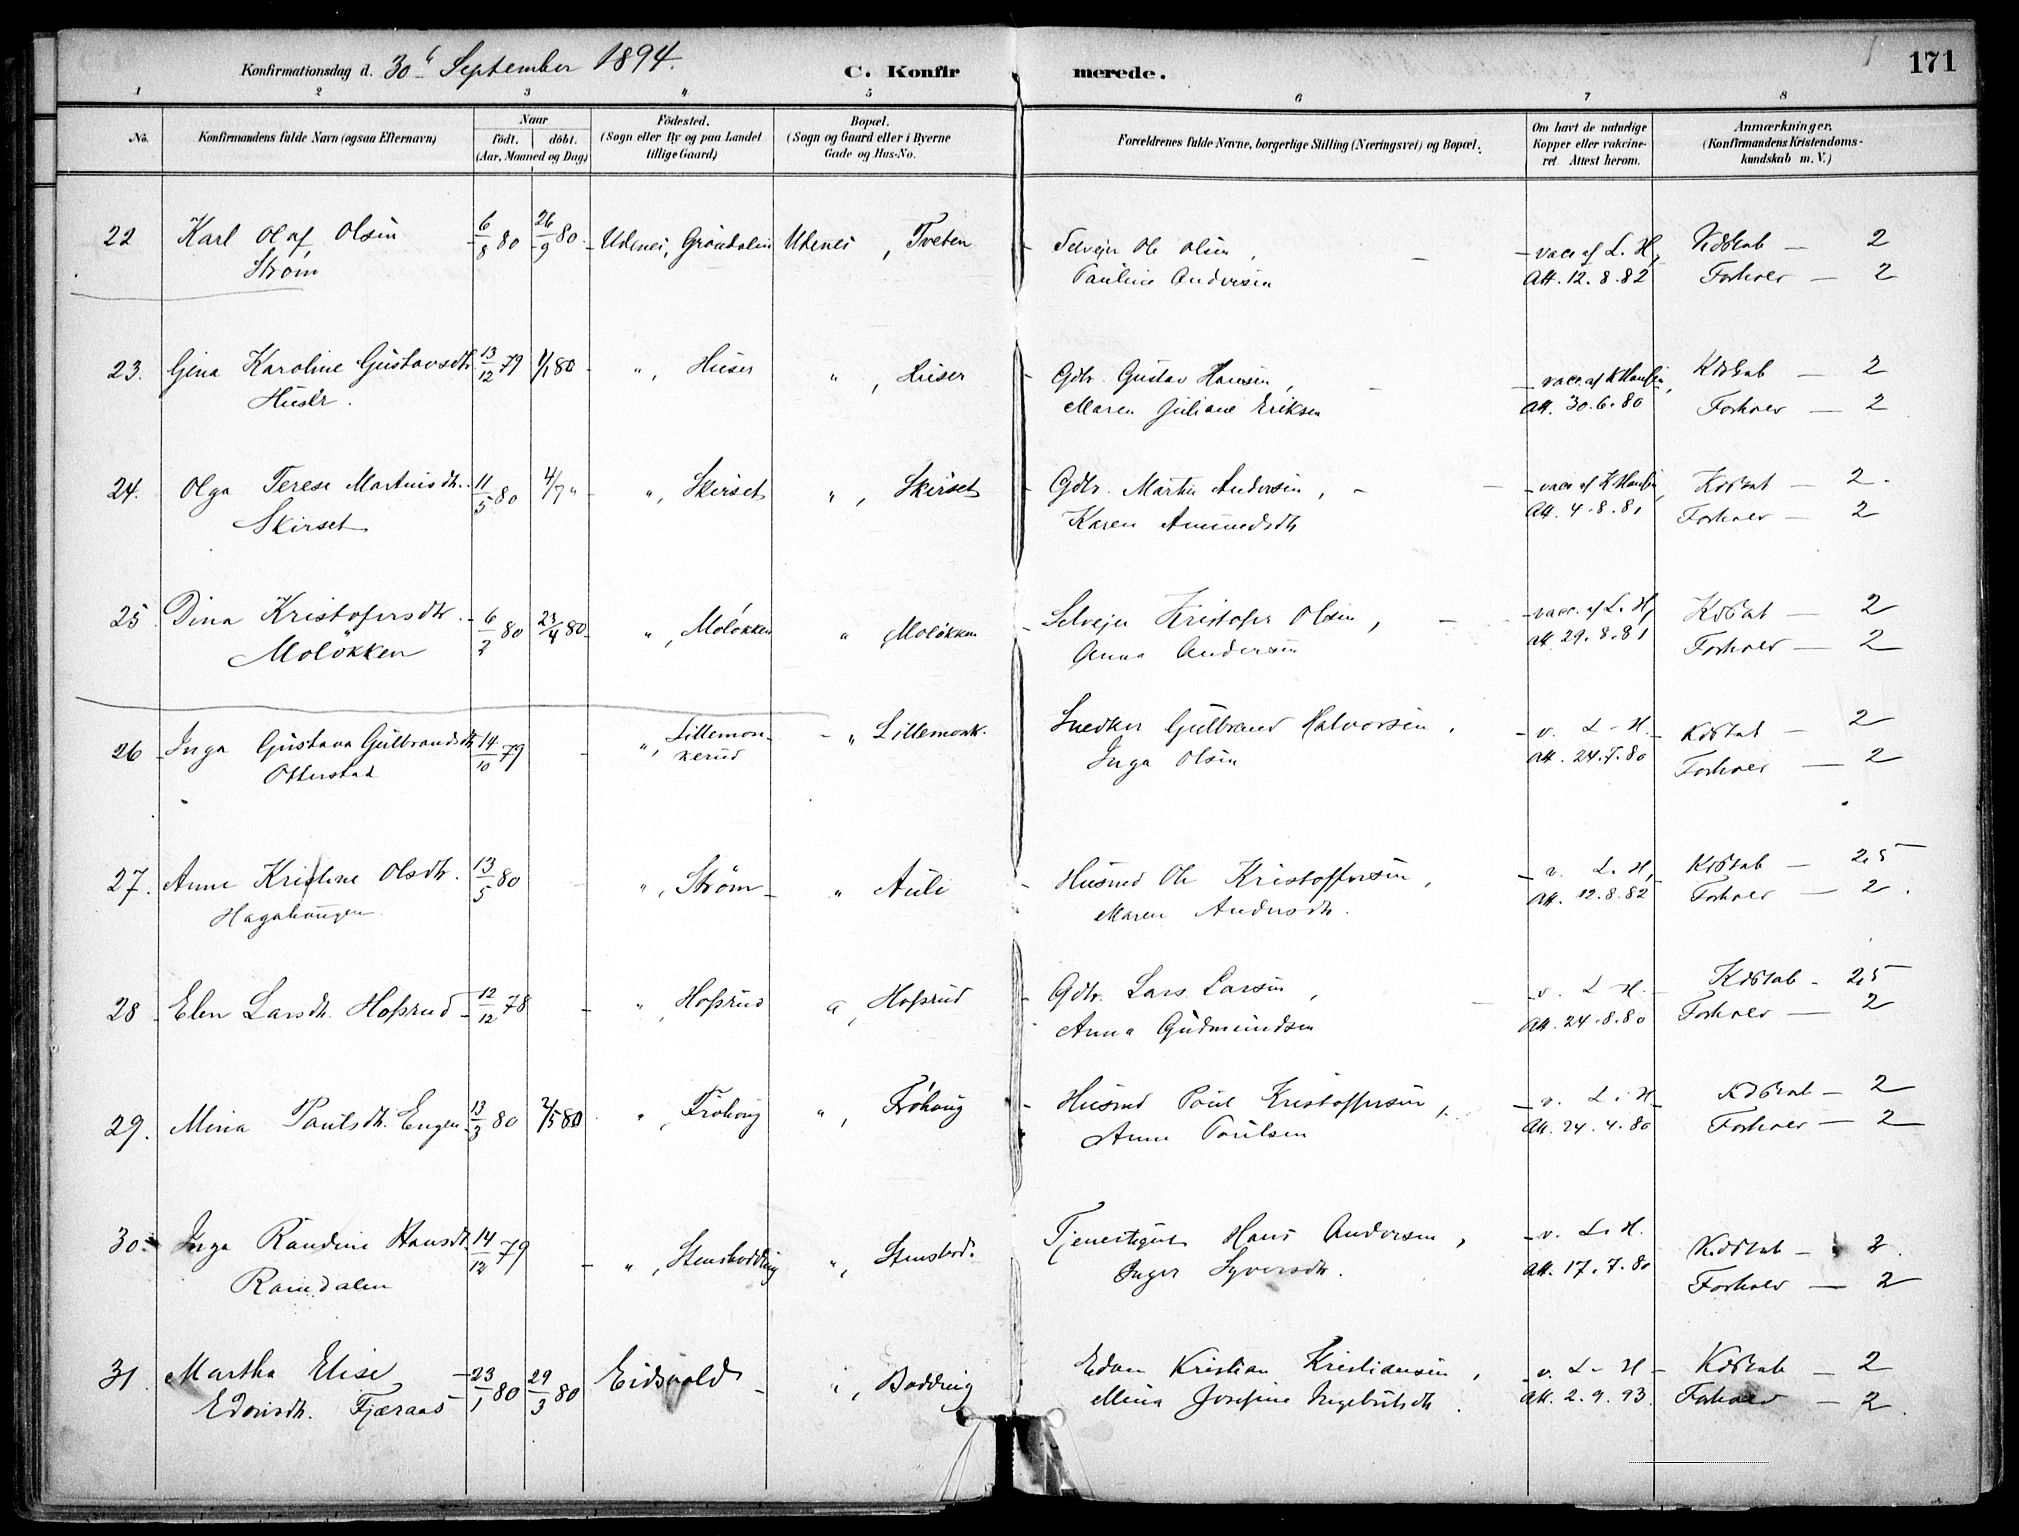 Konfirmationsdag d. 30te September 1894. C. Konfirmerede. 171
1 2 3 4 5 6 7 8
No. Konfirmandens fulde Navn (ogsaa Efternavn) Naar født. døbt. (Aar, Maaned og Dag) Fødested. (Sogn eller By og paa Landet tillige Gaard) Bopæl. (Sogn og Gaard eller i Byerne Gade og Hus-No. Forældrenes fulde Navne, borgerlige Stilling (Næringsvei) og Bopæl. Om havt de naturlige Kopper eller vaccineret Attest herom. Anmærkninger. (Konfirmandens Kristendomskundskab m. V.)
22 Karl Olaf Olsen 6/8 80 26/9 80 Udenes, Grøndalen Udenes, Tveten Selvejer Ole Olsen, vacc af L. H, Kdskab 2
Strøm Pauline Andersen Att. 12.8.82 Forhold 2
23. Gina Karoline Gustavsdtr 13/12 79 1/1 80 ", Huser ", Huser Gdbr. Gustav Hansen, vacc. af K Hansen, Kdskab 2
Huser. Maren Juliane Eriksen Att. 30.6.80 Forhold 2
24. Olga Terese Martinsdtr. 11/5 80 4/7 " ", Skirset ", Skirset Gdbr. Martin Andersen, vacc af K Hansen, Kdskab 2.
Skirset Karen Amundsdtr Att. 4.8.81 Forhold 2
25 Dina Kristofersdtr. 6/2 80 23/4 80 ", Moløkken " Moløkken Selvejer Kristofer Olsen, vacc. af L. H, Kdskab 2
Moløkken Anna Andersen att 29.8.81 Forhold 2
26 Inga Gustava Gulbrandsdtr 14/10 79 ", Lillemonkerud " Lillemonk. Snedker Gulbrand Halvorsen, v. L-H. Kdskab 2
Otterstad Inga Olsen Att. 24.7.80 Forhold 2
27. Anne Kristine Olsdtr. 13/5 80 ", Strøm " Auli Husmd Ole Kristoffersen, v. L. H, Kdskab 2,5
Hagahaugen Maren Andersdtr. Att. 12.8.82 Forhold 2.
28 Elen Larsdtr. Hofsrud 12/12 78 ", Hofsrud ", Hofsrud Gdbr. Lars Larsen, v. L-H. Kdskab 2,5
Anna Gudmundsen Att. 24.8.80 Forhold 2
29. Mina Paulsdtr. Engen 13/3 80 2/5 80 ", Frøhoug ", Frøhoug Husmd Paul Kristoffersen, v. L. H Kdskab 2
Anne Paulsen Att. 24.4.80 Forhold 2
30. Inga Randine Hansdtr. 14/12 79 ", Stensbodding ", Stensbod. Tjenestegut Hans Andersen, v. L. H. Kdskab 2.
Ramdalen Inger Syversdtr. Att. 17.7.80 Forhold 2
31. Martha Elise 23/1 80 29/3 80 Eidsvold ", Bodding Edvin Kristian Kristiansen, v. L-H Kdskab 2
Edvinsdtr. Fjæraas Mina Josefine Ingebritsdtr. Att. 2.9.93. Forhold 2.